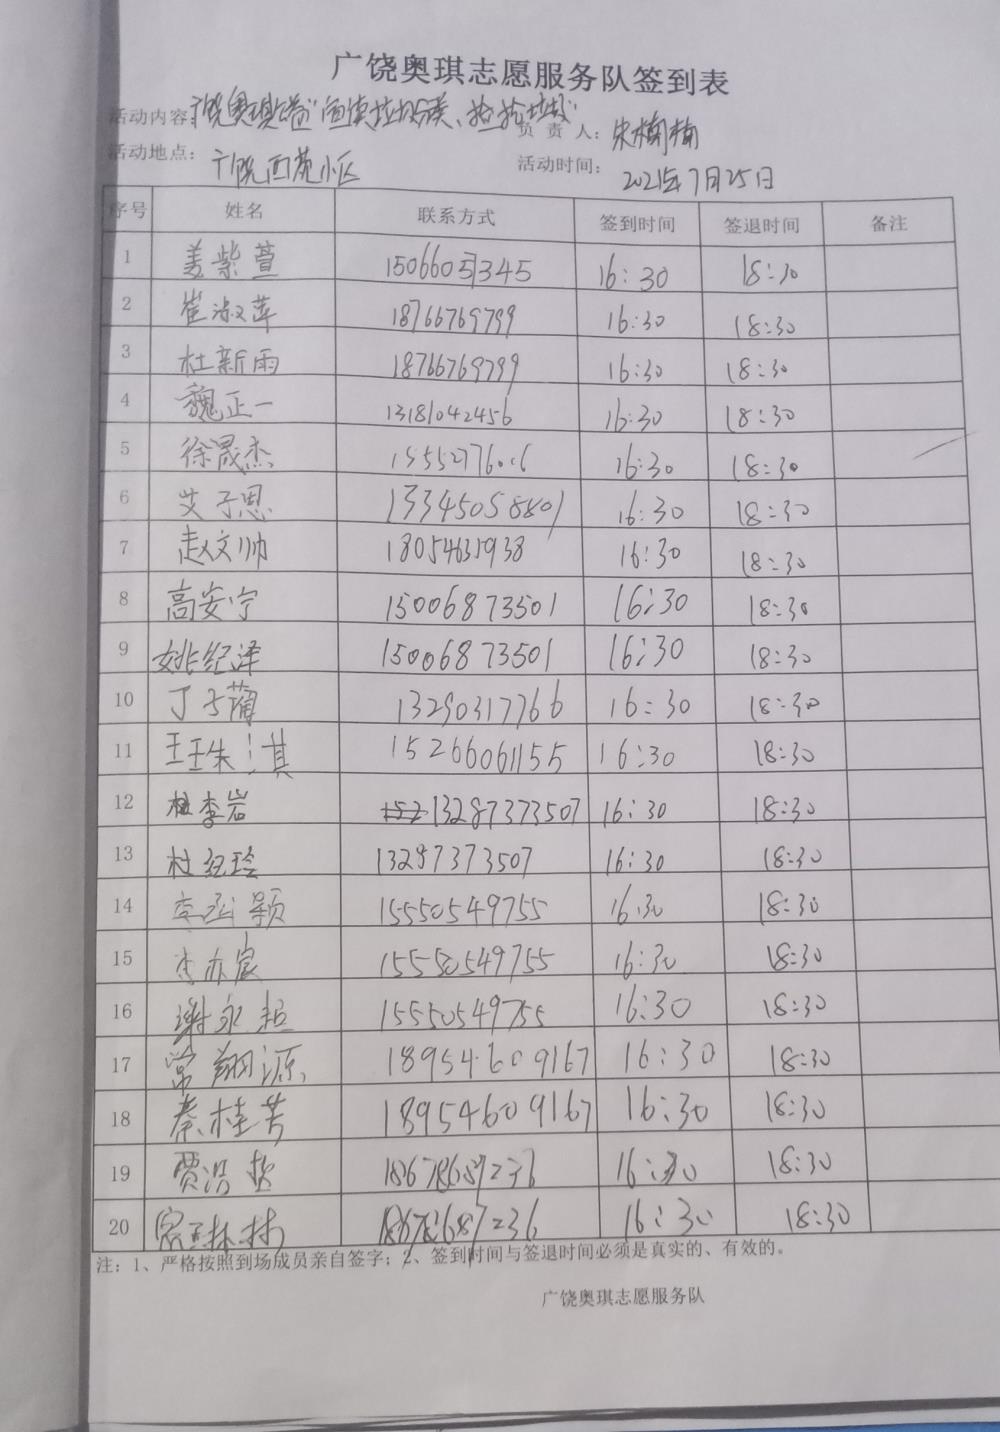 广饶奥琪志愿服务队签到表
活动内容：广饶奥琪志愿"宣传垃圾分类、捡拾垃圾"
负 责 人：宋楠楠
活动地点：广饶西苑小区 活动时间：2021年7月25日
序号 姓名 联系方式 签到时间 签退时间 备注
1 姜紫萱 15066057345 16:30 18:30
2 崔淑萍 18766769799 16:30 18:30
3 杜新雨 18766769799 16:30 18:30
4 魏正一 13181042456 16:30 18:30
5 徐晟杰 16:30 18:30
6 艾子恩 13345058801 16:30 18:30
7 赵文帅 18054631938 16:30 18:30
8 高安宁 15006873501 16:30 18:30
9 姚纪泽 15006873501 16:30 18:30
10 丁子蔺 13290317766 16:30 18:30
11 15266061155 16:30 18:30
12 李岩 13287373507 16:30 18:30
13 杜纪玲 13287373507 16:30 18:30
14 李函颖 15550549755 16:30 18:30
15 李亦宸 15550549755 16:30 18:30
16 谢永超 15550549755 16:30 18:30
17 常翔源 18954609167 16:30 18:30
18 秦桂芳 18954609167 16:30 18:30
19 贾浩 18678687236 16:30 18:30
20 18678687236 16:30 18:30
注：1、严格按照到场成员亲自签字；2、签到时间与签退时间必须是真实的、有效的。
广饶奥琪志愿服务队